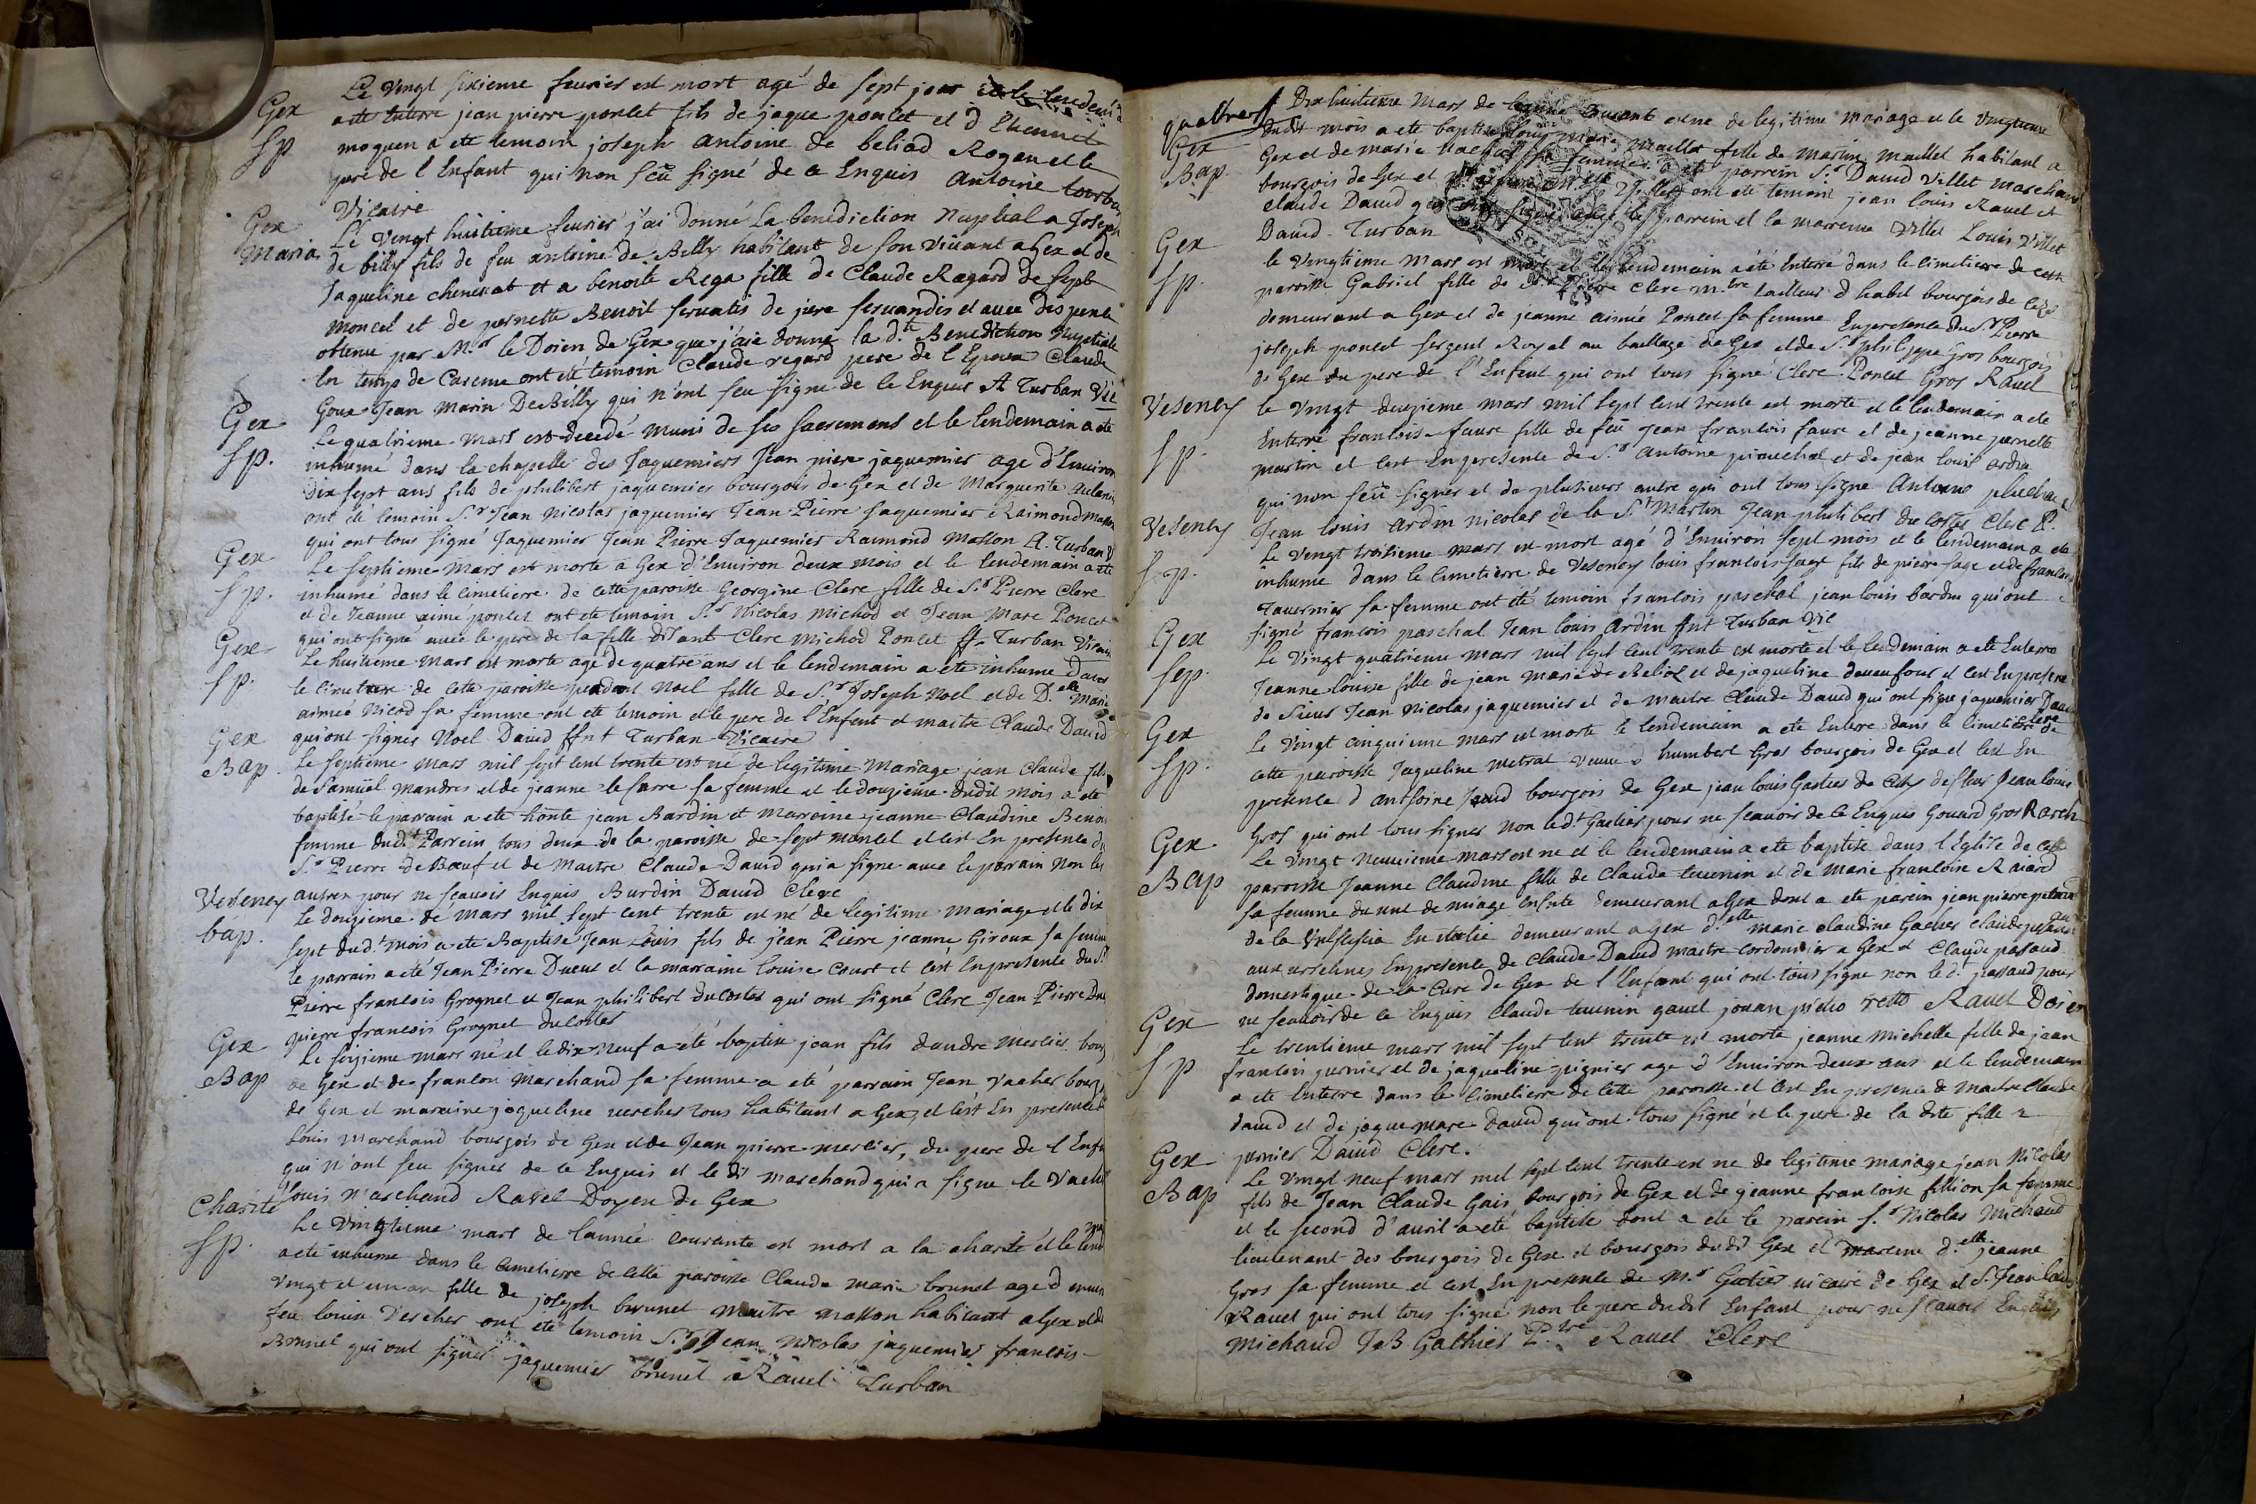 Le Vingt sixieme feurier est mort agé de sept jour et le lendem
Gex
a ete enterre jean pierre poncet fils de jaque poncet et d Etiennet
Sp
moguen a ete temoin joseph antoine de beliad Rogen et le
pere de l'Enfant qui non sceu signé de ce Enquis Antoine
Vicaire
Gex
Le Vingt huitieme feurier j'ai donné La benediction Nuptial a Joseph
Maria.
de billy fils de feu antoine de Billy habitant de son Viuant a Gex et de
Jaqueline chenevat et a benoite Rega fille de Claude Ragard de sept
moncel et de pernette Benoit seruatis de jure seruandis et auec dispence
obtenue par M.r le Doien de Gex que j'aie donné la d.te Benediction Nuptiale
En temps de Careme ont été temoin Claude regard pere de l'Epouse Claude
Goux Jean Marin DeBilly qui n'ont seu signe de le Enquis A Turban Vic
Gex
Le quatrieme Mars est decedé muni de ses sacremens et le lendemain a ete
Sp.
inhumé dans la chapelle des Jaquemiers Jean piere jaquemier age d'Enuiron
Dix sept ans fils de philibert jaquemier bourgois de Gex et de Marguerite
ont été temoin S.r Jean Nicolas jaquemier Jean Pierre jaquemier Raimond Masson
qui ont tous signé Jaquemier Jean Pierre Jaquemier Raimond Masson A. Turban V
Gex
Le septieme Mars est morte a Gex d'Enuiron deux mois et le lendemain a ete
Sp.
inhumé dans le cimetiere de cette paroisse Georgine Clerc fille de S.r Pierre Clerc
et de Jeanne aimé poncet ont ete temoin S.r Nicolas michod et Jean Marc Poncet
qui ont signé auec le pere de la fille disant Clerc Michod Poncet Turban Vicaire
Gex
Le huitieme Mars est morte agé de quatre ans et le lendemain a été inhume Dans
Sp.
le cimetiere de cete paroisse noel fille de S.r Joseph Noel et de D.elle Marie
aimeé Nicod sa femme ont ete temoin et le pere de l'Enfent et maitre Claude David
qui ont signes Noel David Turban Vicaire
Gex
Le septieme Mars mil sept cent trente est né de legitime Mariage jean Claude fils
Bap.
de Samuël mandres et de jeanne le farre sa femme et le douzieme dudit mois a ete
baptisé le parrain a ete honte jean Bardin et marraine jeanne Claudine Benoi
femme dud.t Parrein tous deux de la paroisse de sept moncel et c'est En presence d
S.r Pierre de Bœuf et de Maitre Claude David qui a signe auec le parain non les
autres pour ne scauoir Enquis Burdin David Clerc
Veseney
Le douzieme de mars mil sept cent trente est né de legitime mariage et le dix
bap.
sept dud.t mois a ete Baptise Jean Louis fils de jean Pierre jeanne Giroux sa femme
le parrain a été Jean Pierre Ducut et la marraine Louise Court et c'est Enpresence du S.r
Pierre francois Grognet et Jean philibert ducostes qui ont signé Clerc Jean Pierre Du
pierre francois Grognet ducostes
Gex
Le seizieme mars né et le dix neuf a été baptise jean fils dandre merlier bour
Bap
de Gex et de francoi Marchand sa femme a eté parrain Jean Vacher bourg
de Gex et maraine jaqueline vercher tous habitant a Gex, et c'est En presence d
Louis Marchand bourgois de Gex et de Jean pierre merlier, du pere de l Enfa
qui n'ont seu signer de ce Enquis et le d.t marchand qui a signe le Vacher
Louis Marchand Ravel Doyen de Gex
Charité
Le Vingtieme mars de l'année courante est mort a la charité et le lend
Sp.
a ete inhume dans le Cimetierre de cette paroisse Claude marie brunet age d enuir
vingt et un an fille de joseph brunet maitre masson habitant a Gex et de
feu louise Dercher ont ete temoin S.r Jean Nicolas jaquemier francois
Brunet qui ont signer jaquemier brunet Rauel Turban
quattre
Dix huitieme Mars de courant est ne de legitime Mariage et le Vingtieme
Gex
Dudit mois a ete baptise marie Maillet fille de Martin Maillet habitant a
Bap.
Gex et de marie sa femme a ete parrein S.r David Villet Marchand
bourgois de Gex et Villet ont ete temoin jean louis Rauel et
claude David qui signé le parrein et la marreine Villet Louis Villet
David Turban
Gex
le Vingtieme Mars est mort et le lendemain a été Enterré dans le cimetierre de cette
Sp.
paroisse Gabriel fille de Clerc m.tre tailleur d habit bourgois de
demeurant a Gex et de jeanne aimée Poncet sa femme Enpresence du S.r Pierre
joseph poncet sergent Royal au baillage de Gex et de S.r philippe Gros bourgois
de Gex du pere de l'Enfent qui ont tous signe Clerc Poncet Gros Rauel
Veseney
le Vingt deuzieme mars mil sept cent trente est morte et le lendemain a ete
Sp.
Enterré francoise faure fille de feu Jean francois faure et de jeanne pernette
martin et c'est Enpresence de S.r antoine et de jean louis ardin
qui non sceu signer et de plusieurs autre qui ont tous signe Antoine
Jean louis ardin nicolas de la S.t Martin Jean philibert du costes Clerc P.
Veseney
Le Vingt troisieme mars est mort agé d'Enuiron sept mois et le lendemain a ete
Sp.
inhumé dans le cimetierre de Veseney louis francois sage fils de pierre sage et de francoise
tauernier sa femme ont été temoin francois paschal jean louis bardin qui ont
signé francois paschal Jean louis Ardin Turban Vic
Gex
Le Vingt quatrieme mars mil sept cent trente est morte et le lendemain a ete Enterré
Sep.
Jeanne louise fille de jean marie de Beliot et de jaqueline douenfour et c'est Enpresence
de Sieur Jean Nicolas jaquemier et de maitre Claude David qui ont signe jaquemier David
Gex
Le Vingt cinquieme mars est morte le lendemain a ete Enterre dans le Cimetierre de
Sp.
cette paroisse Jaqueline metral veuue d humbert Gros bourgois de Gex et c'est En
presence d'anthoine bourgois de Gex jean louis Gastier de et Jean louis
Gros qui ont tous signes non led.t Gastier pour ne scauoir de ce Enquis Gouard Gros
Gex
Le Vingt neuuieme mars est né et le lendemain a ete baptise dans l'Eglise de cette
Bap
paroisse Jeanne Claudine fille de Claude teuenin et de Marie francoise Raiard
sa femme demeurant a Gex dont a ete parein jean pierre
de la En demeurant a gex d.elle marie claudine Gacher
aux urselines Enpresence de Claude David maitre cordonnier a Gex et Claude pasaud
domestique de la Cure de Gex de l'Enfant qui ont tous signe non le d. passaud pour
ne scauoir de ce Enquis Claude teuenin gauel jouan pietro retto Rauel Doien
Gex
Le trentieme mars mil sept cent trente est morte jeanne michelle fille de jean
Sp
francois pernier et de jaqueline pignier age d'Enuiron deux ans et le lendemain
a ete Enterre dans le Cimetierre de cette paroisse et c'est En presence de Maitre Claude
david et de jaque marc david qui ont tous signé et le pere de la dite fille
pernier David Clerc.
Gex
Le Vingt neuf mars mil sept cent trente est né de legitime mariage jean Nicolas
Bap
fils de Jean Claude Gais bourgois de Gex et de jeanne francoise fillion sa femme
et le second d'auril a été baptisé dont a ete le parein S.r Nicolas Michaud
Lieutenant des bourgois de Gex et bourgois dudit Gex et mareine d.elle jeanne
Gros sa femme et c'est En presence de M.r Gatier uicaire de Gex et S. Jean louis
Rauel qui ont tous signé non le pere dudit Enfant pour ne scauoir Enquis
Michaud JB Gathier P.tre Rauel Clerc